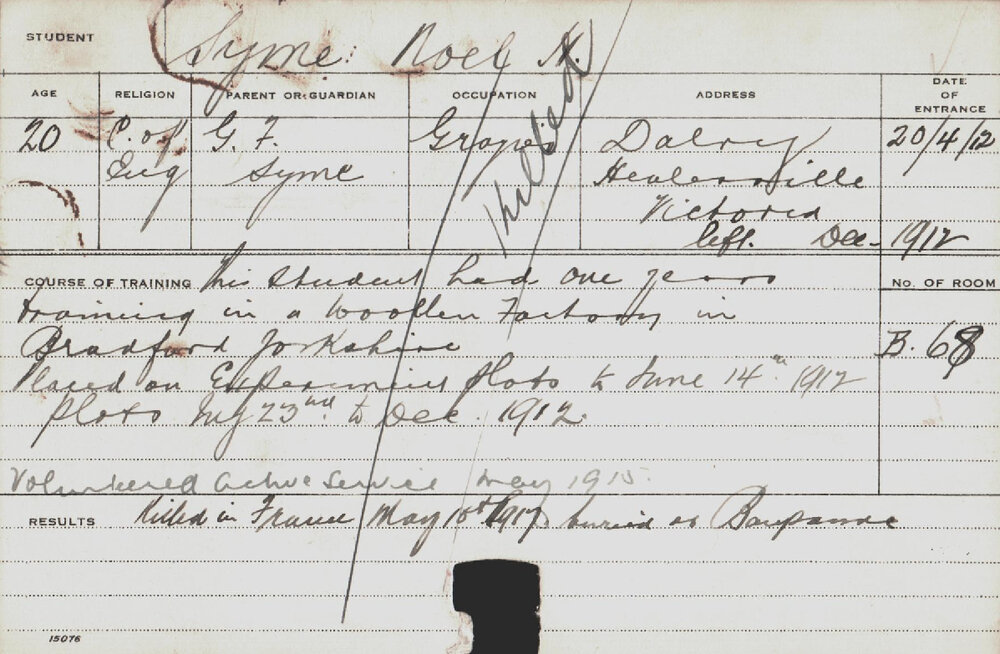 STUDENT Syme: Noel N.
AGE RELIGION PARENT OR GUARDIAN OCCUPATION ADDRESS DATE OF ENTRANCE
20 C. of G. F. Grazier Dalry 20/4/12
Eng Syme Healesville
Victoria
left. Dec- 1912
Killed
COURSE OF TRAINING This student had one years No. OF ROOM
training in a Woollen Factory in
Bradford Yorkshire B. 68
Placed on Experiment plots to June 14th 1912
plots July 23rd to Dec. 1912.
Volunteered active service May 1915.
RESULTS Killed in France May 10th 1917 buried at Bapaume
15076